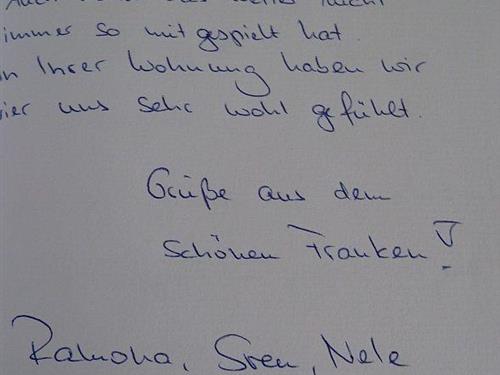 das Wetter nicht
immer so mitgespielt hat.
In Ihrer Wohnung haben wir
vier uns sehr wohl gefühlt.
Grüße aus dem
schönen Franken!
Ramona, Sven, Nele